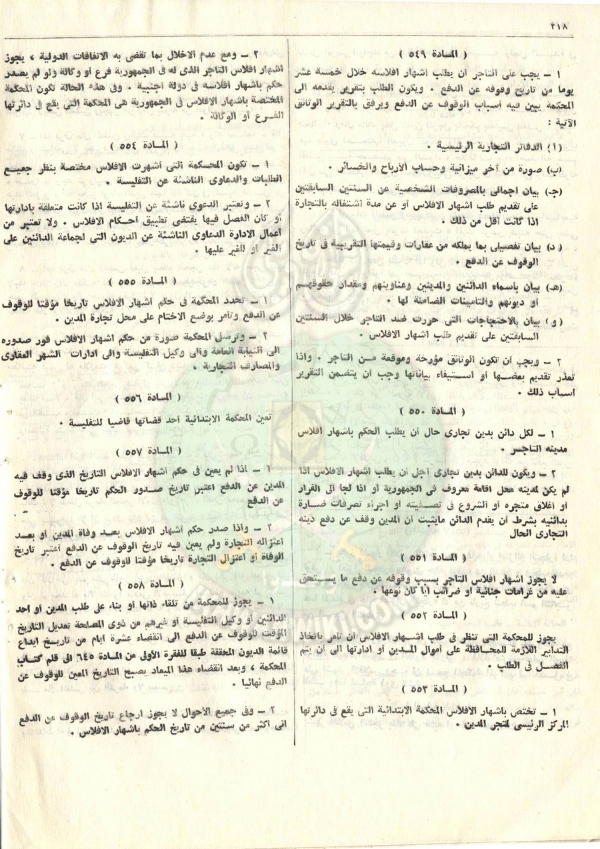 ٢١٨
( المادة ٥٤٩ )
١ – يجب على التاجر أن يطلب اشهار افلاسه خلال خمسة عشر
يوما من تاريخ وقوفه عن الدفع . ويكون الطلب بتقرير يقدمه الى
المحكمة يبين فيه أسباب الوقوف عن الدفع ويرفق بالتقرير الوثائق
الآتية :
(أ) الدفاتر التجارية الرئيسية .
(ب) صورة من آخر ميزانية وحساب الأرباح والخسائر .
(جـ) بيان اجمالى بالمصروفات الشخصية عن السنتين السابقتين
على تقديم طلب اشهار الافلاس أو عن مدة اشتغاله بالتجارة
اذا كانت أقل من ذلك .
(د) بيان تفصيلى بما يملكه من عقارات وقيمتها التقريبية فى تاريخ
الوقوف عن الدفع .
(هـ) بيان بأسماء الدائنين والمدينين وعناوينهم ومقدار حقوقهم
أو ديونهم والتأمينات الضامنة لها .
(و) بيان بالاحتجاجات التى حررت ضد التاجر خلال السنتين
السابقتين على تقديم طلب اشهار الافلاس .
٢ – ويجب أن تكون الوثائق مؤرخة وموقعة من التاجر . واذا
تعذر تقديم بعضها أو استيفاء بياناتها وجب أن يتضمن التقرير
أسباب ذلك .
( المادة ٥٥٠ )
١ – لكل دائن بدين تجارى حال أن يطلب الحكم باشهار افلاس
مدينه التاجر .
٢ – ويكون للدائن بدين تجارى آجل أن يطلب اشهار الافلاس اذا
لم يكن لمدينه محل اقامة معروف فى الجمهورية أو اذا لجأ الى الفرار
أو اغلاق متجره أو الشروع فى تصفيته أو اجراء تصرفات ضارة
بدائنيه بشرط أن يقدم الدائن مايثبت أن المدين وقف عن دفع دينه
التجارى الحال
( المادة ٥٥١ )
لا يجوز اشهار افلاس التاجر بسبب وقوفه عن دفع ما يستحق
عليه من غرامات جنائية أو ضرائب أيا كان نوعها .
( المادة ٥٥٢ )
يجوز للمحكمة التى تنظر فى طلب اشهار الافلاس أن تأمر باتخاذ
التدابير اللازمة للمحافظة على أموال المدين أو ادارتها الى أن يتم
الفصل فى الطلب .
( المادة ٥٥٣ )
١ – تختص باشهار الافلاس المحكمة الابتدائية التى يقع فى دائرتها
المركز الرئيسى لمتجر المدين .
٢ – ومع عدم الاخلال بما تقضى به الاتفاقات الدولية ، يجوز
اشهار افلاس التاجر الذى له فى الجمهورية فرع أو وكالة ولو لم يصدر
حكم باشهار افلاسه فى دولة أجنبية . وفى هذه الحالة تكون المحكمة
المختصة باشهار الافلاس فى الجمهورية هى المحكمة التى يقع فى دائرتها
الفرع أو الوكالة .
( المادة ٥٥٤ )
١ – تكون المحكمة التى أشهرت الافلاس مختصة بنظر جميع
الطلبات والدعاوى الناشئة عن التفليسة .
٢ – وتعتبر الدعوى ناشئة عن التفليسة اذا كانت متعلقة بادارتها
أو كان الفصل فيها يقتضى تطبيق أحكام الافلاس . ولا تعتبر من
أعمال الادارة الدعاوى الناشئة عن الديون التى لجماعة الدائنين على
الغير أو للغير عليها .
( المادة ٥٥٥ )
١ – تحدد المحكمة فى حكم اشهار الافلاس تاريخا مؤقتا للوقوف
عن الدفع وتأمر بوضع الاختام على محل تجارة المدين .
٢ – وترسل المحكمة صورة من حكم اشهار الافلاس فور صدوره
الى النيابة العامة والى وكيل التفليسة والى ادارات الشهر العقارى
والمصارف التجارية .
( المادة ٥٥٦ )
تعين المحكمة الابتدائية أحد قضاتها قاضيا للتفليسة .
( المادة ٥٥٧ )
١ – اذا لم يعين فى حكم اشهار الافلاس التاريخ الذى وقف فيه
المدين عن الدفع اعتبر تاريخ صدور الحكم تاريخا مؤقتا للوقوف
عن الدفع
٢ – واذا صدر حكم اشهار الافلاس بعد وفاة المدين أو بعد
اعتزاله التجارة ولم يعين فيه تاريخ الوقوف عن الدفع اعتبر تاريخ
الوفاة أو اعتزال التجارة تاريخا مؤقتا للوقوف عن الدفع .
( المادة ٥٥٨ )
١ – يجوز للمحكمة من تلقاء ذاتها أو بناء على طلب المدين أو أحد
الدائنين أو وكيل التفليسة أو غيرهم من ذوى المصلحة تعديل التاريخ
المؤقت للوقوف عن الدفع الى انقضاء عشرة أيام من تاريخ ايداع
قائمة الديون المحققة طبقا للفقرة الأولى من المادة ٦٤٥ الى قلم كتاب
المحكمة ، وبعد انقضاء هذا الميعاد يصبح التاريخ المعين للوقوف عن
الدفع نهائيا .
٢ – وفى جميع الأحوال لا يجوز ارجاع تاريخ الوقوف عن الدفع
الى أكثر من سنتين من تاريخ الحكم باشهار الافلاس .